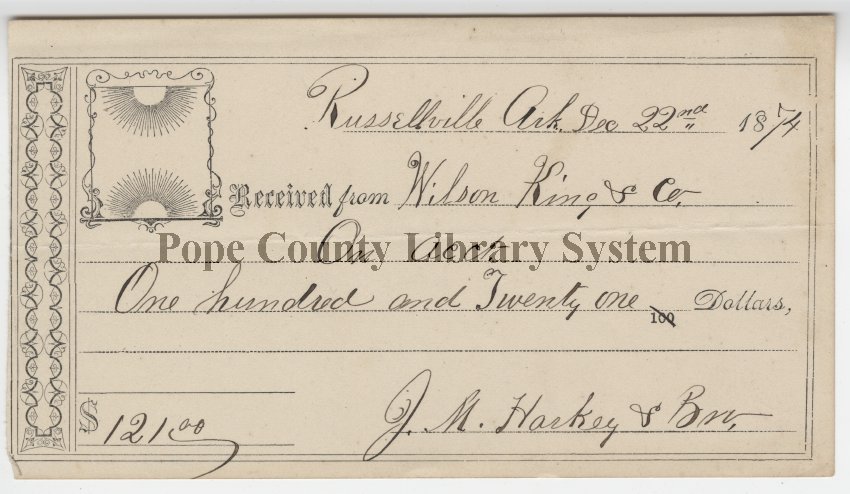 Russellville Ark. Dec 22nd 1874
Received from Wilson King & Co.
On acct.
Pope County Library System
One hundred and Twenty one /100 Dollars,
$ 121.00
J. M. Harkey & Bro.